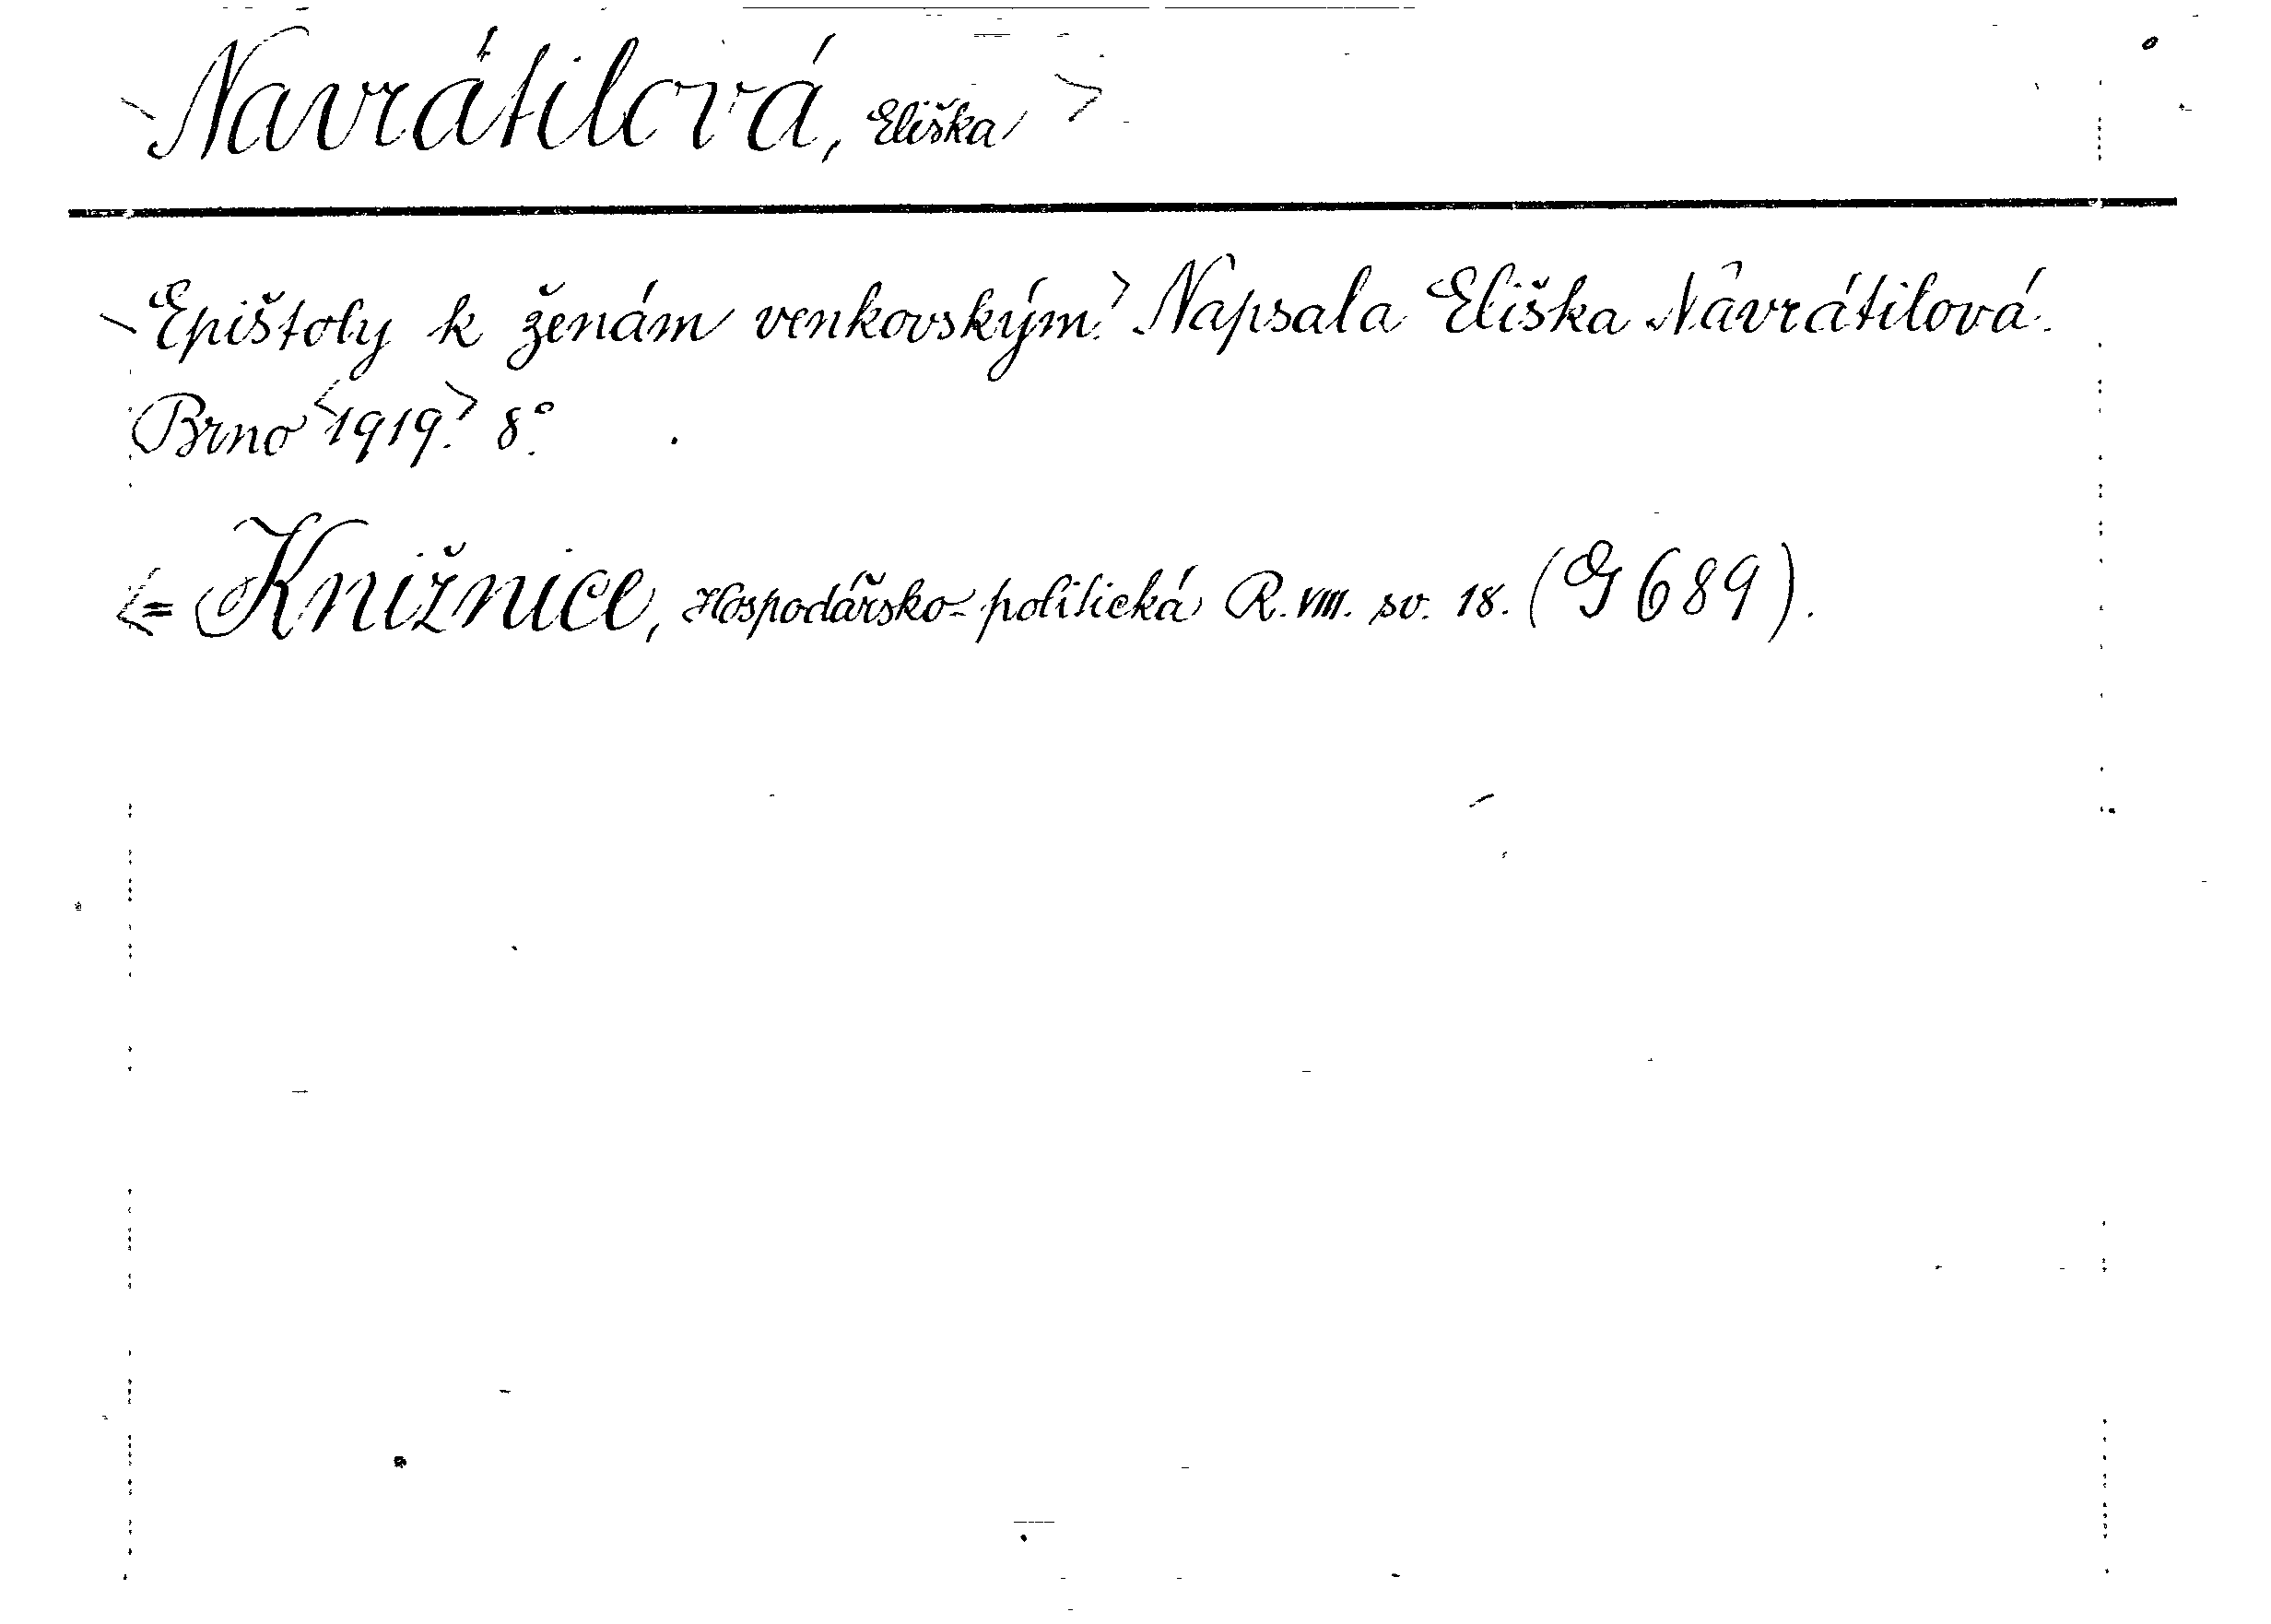 Navrátilová, Eliška
Epištoly k ženám venkovským. Napsala Eliška Navrátilová.
Brno 1919. 8°.
= Knižnice, Hospodářsko-politická R. VIII. sv. 18. (G 689).